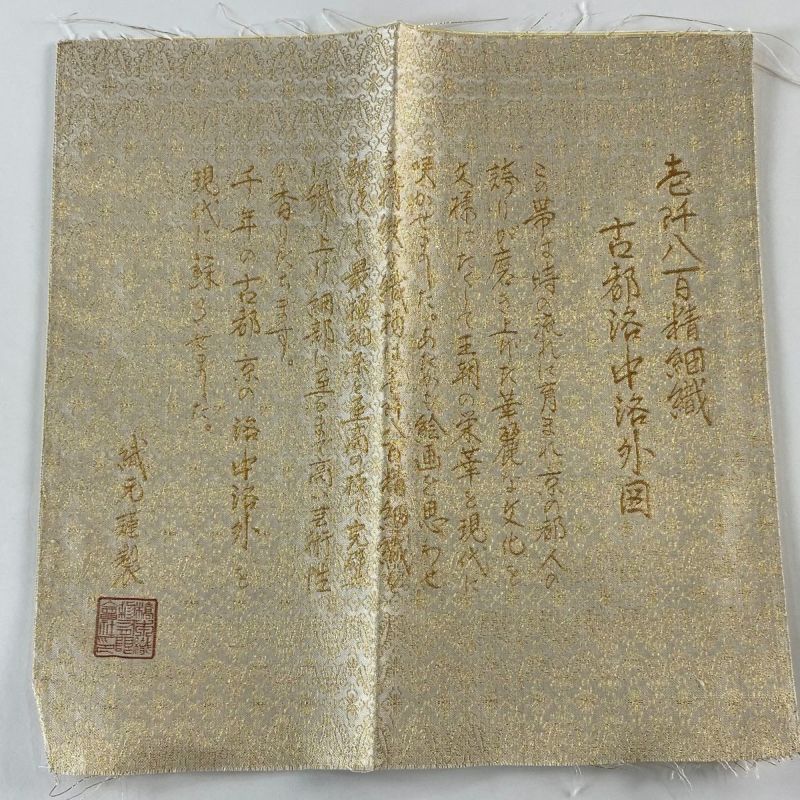 壱阡八百精細織
古都洛中洛外図
この帯は時の流れに育まれ京の都人の
誇りが磨き上げた華麗な文化を
文様にたくして王朝の栄華を現代に
咲かせました。あたかも絵画を思わせ
壱阡八百精細織
最極細糸を
に織り上げ細部に至るまで高い芸術性
が香りたちます。
千年の古都 京の洛中洛外を
現代に蘇らせました。
織元謹製